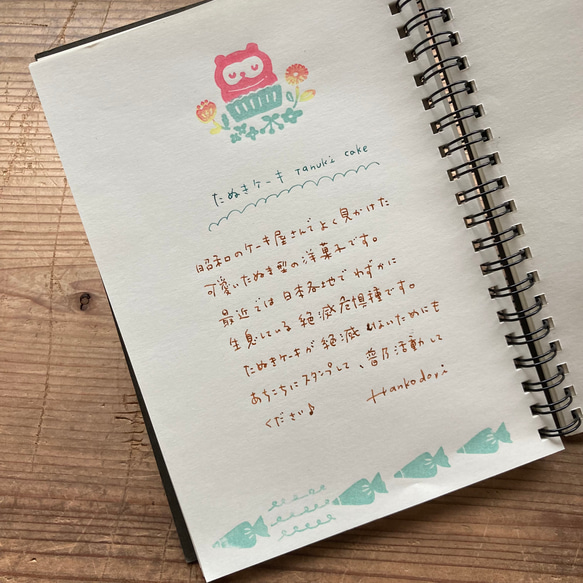 たぬきケーキ tanuki cake
昭和のケーキ屋さんでよく見かけた
可愛いたぬき型の洋菓子です。
最近では日本各地でわずかに
生息している絶滅危惧種です。
たぬきケーキが絶滅しないためにも
あちこちにスタンプして、普及活動して
ください♪
Hankodori